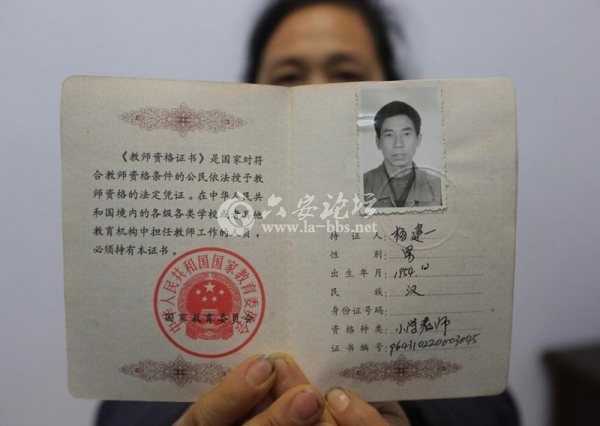 《教师资格证书》是国家对符
合教师资格条件的公民依法授予教
师资格的法定凭证。在中华人民共
和国境内的各级各类学校或者其他
教育机构中担任教师工作的人员,
必须持有本证书。
国家教育委员会
中华人民共和国国家教育委员会
持证人:杨建一
性别:男
出生年月:1954.12
民族:汉
身份证号码:
资格种类:小学教师
证书编号:964310220003045
六安论坛
www.la-bbs.net